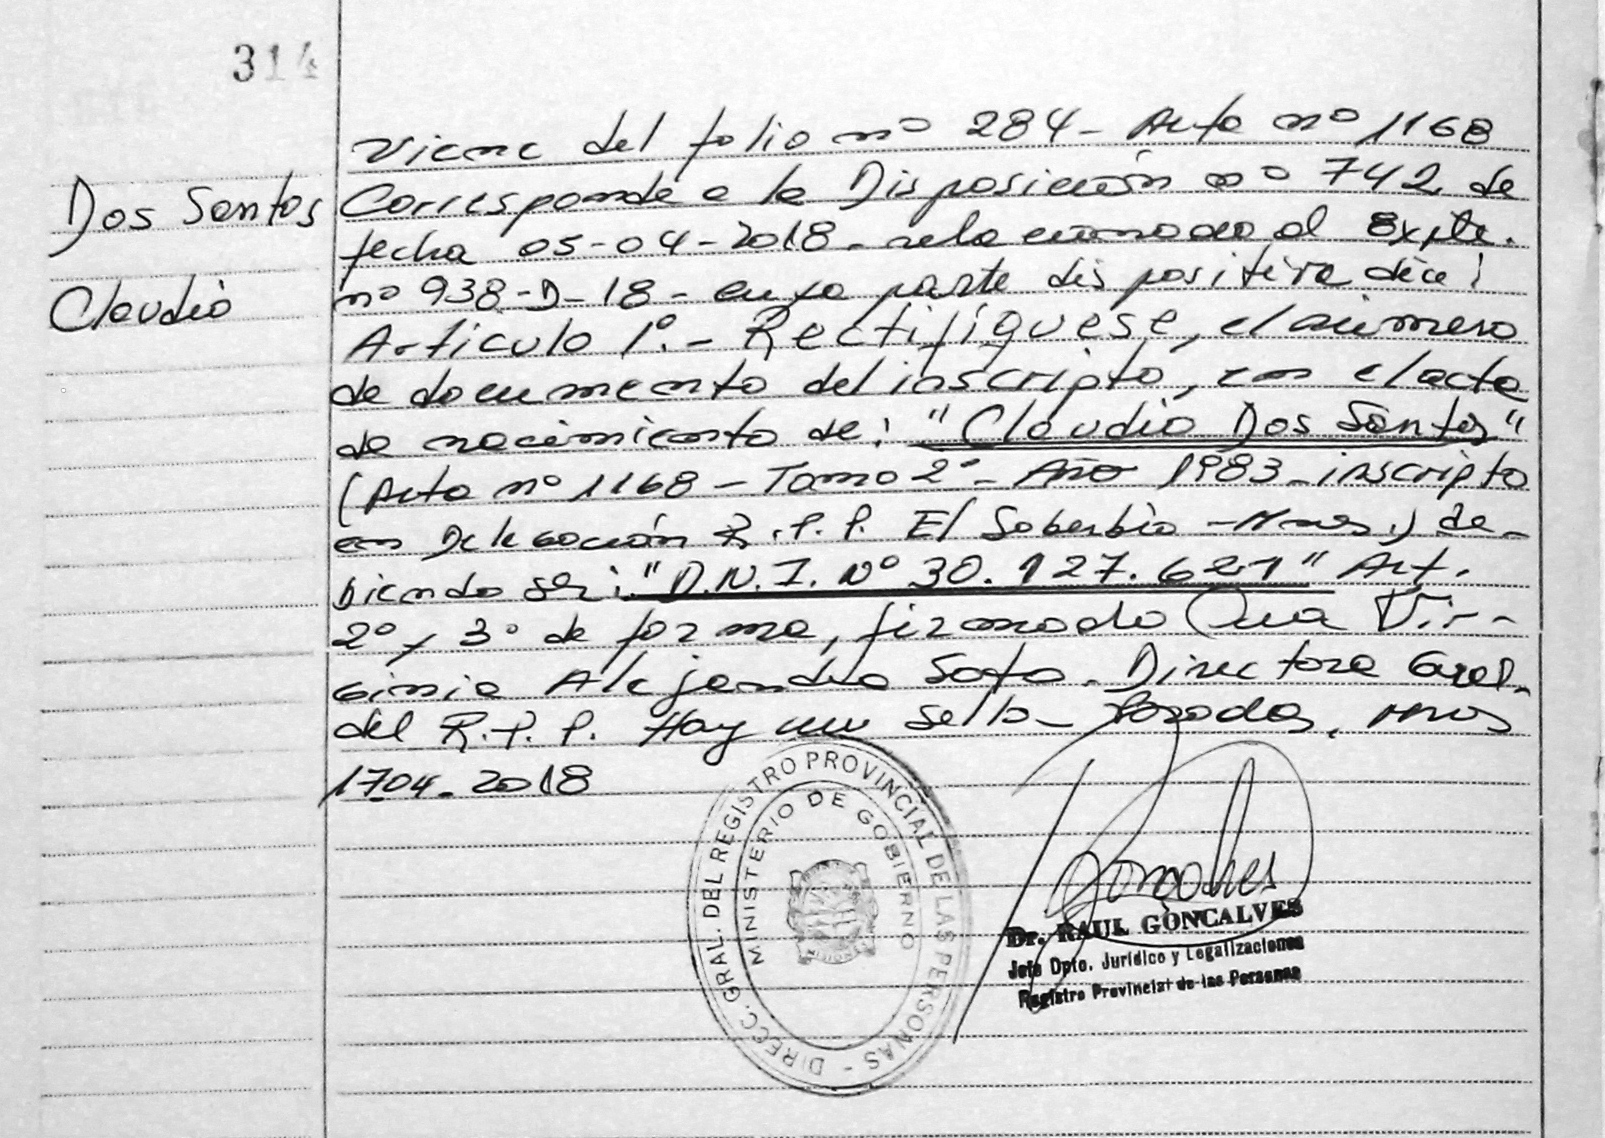 314
Dos Santos
Claudio
Viene del folio nº 284 - Acta nº 1168
Corresponde a la Disposición nº 742 de
fecha 05-04-2018 - relacionado al Expte.
nº 938-D-18 - cuya parte dispositiva dice:
Artículo 1º.- Rectifíquese, el número
de documento del inscripto, en el acta
de nacimiento de: "Claudio Dos Santos"
(Acta nº 1168 - Tomo 2º - Año 1983 - inscripto
en Delegación R.P.P. El Soberbio - Mnes.) de-
biendo ser: "D.N.I. Nº 30.127.621" Art.
2º y 3º de forma, firmado Ana Vir-
ginia Alejandra Soto. Directora Gral.
del R.P.P. Hay un sello - Posadas, Mnes
17.04.2018
DIRECC. GRAL. DEL REGISTRO PROVINCIAL DE LAS PERSONAS -
MINISTERIO DE GOBIERNO
Goncalves
Dr. RAUL GONCALVES
Jefe Dpto. Jurídico y Legalizaciones
Registro Provincial de las Personas